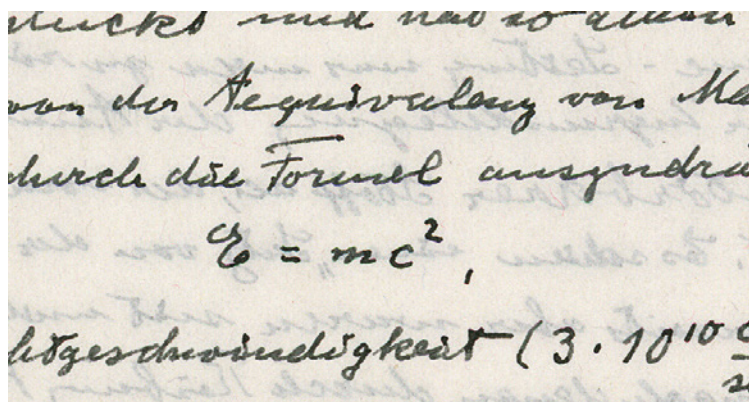 und hat so
von der Aequivalenz von
durch die Formel ausgedrü
E = mc²,
htgeschwindigkeit (3 · 10¹⁰